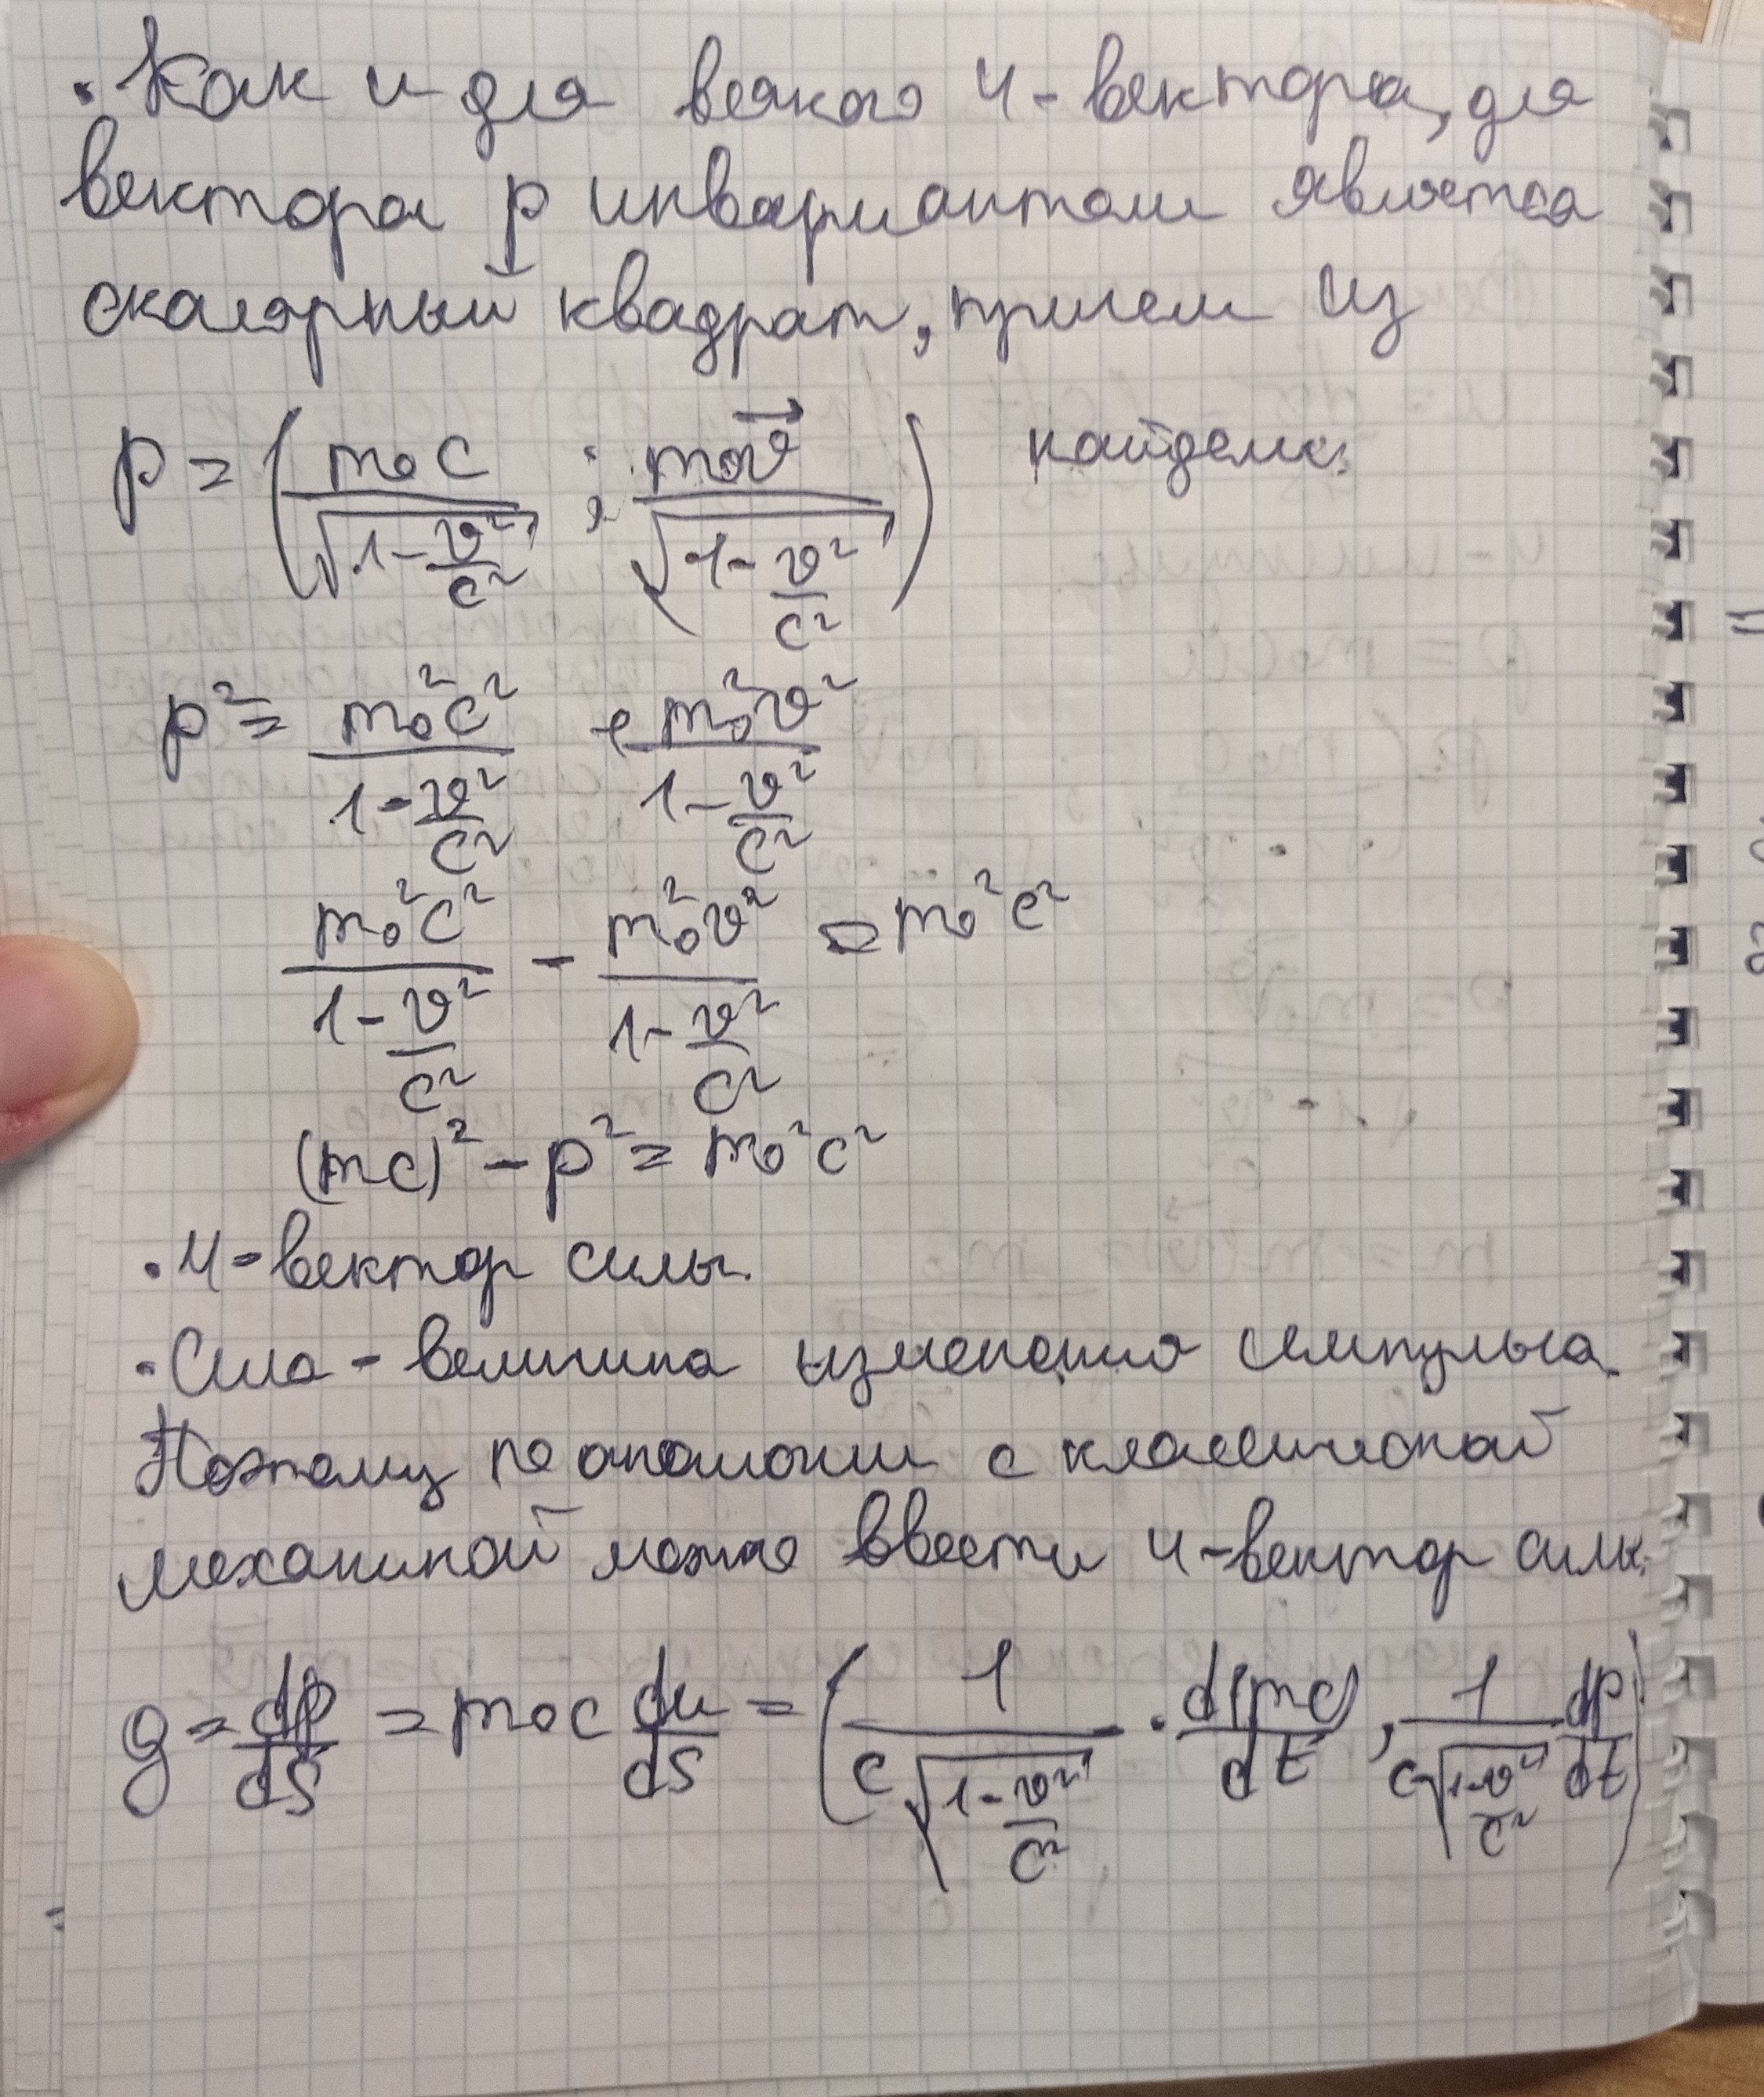 · Как и для всякого 4-вектора, для
вектора p инвариантом является
скалярный квадрат, причем из
p = (m₀c / √(1 - v²/c²) ; m₀v⃗ / √(1 - v²/c²)) найдем:
p² = m₀²c² / (1 - v²/c²) - m₀²v² / (1 - v²/c²)
m₀²c² / (1 - v²/c²) - m₀²v² / (1 - v²/c²) = m₀²c²
(mc)² - p² = m₀²c²
· 4-вектор силы.
· Сила - величина изменения импульса.
Поэтому по аналогии с классической
механикой можно ввести 4-вектор силы.
g = dp/ds = m₀c du/ds = (1 / (c√(1 - v²/c²)) · d(mc)/dt, 1 / (c√(1 - v²/c²)) dp/dt)